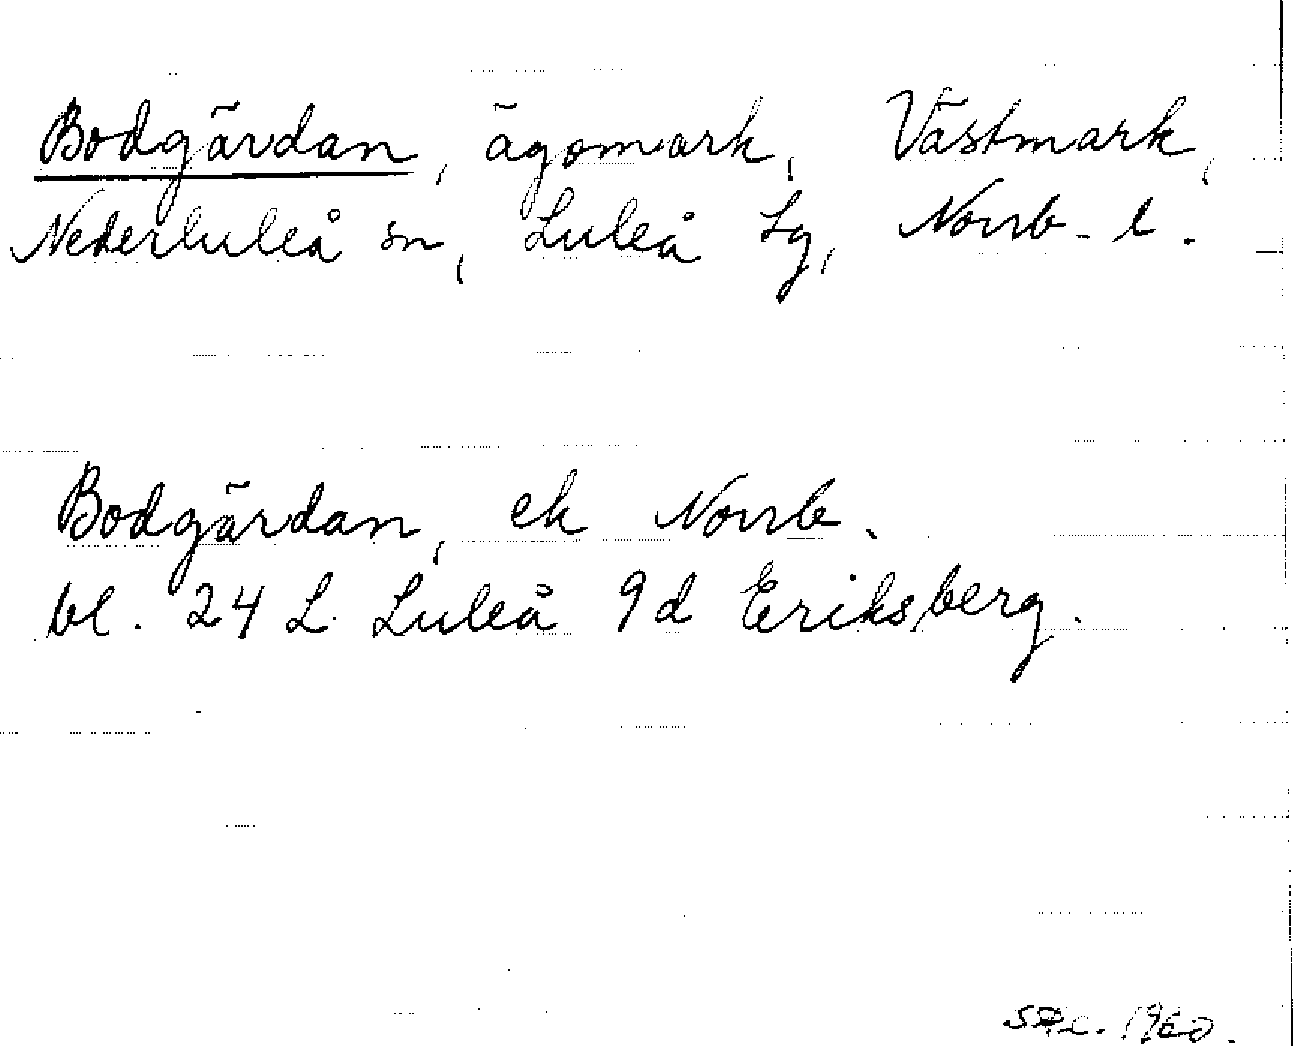 Bodgärdan, ägomark, Västmark,
Nederluleå sn, Luleå tg, Norrb. l.
Bodgärdan, ek Norrb.
bl. 24 L Luleå 9d Eriksberg.
1960.